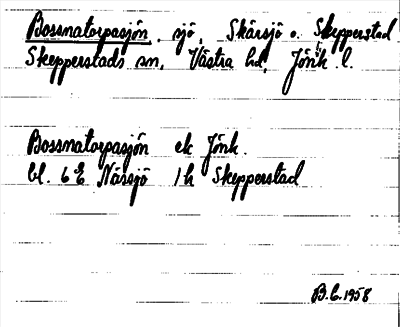 Bossnatorpasjön, sjö, Skärsjö o. Skepperstad
Skepperstads sn, Västra hd, Jönk. l.
Bossnatorpasjön ek Jönk.
bl. 6 E Nässjö 1 h Skepperstad
B.E. 1958